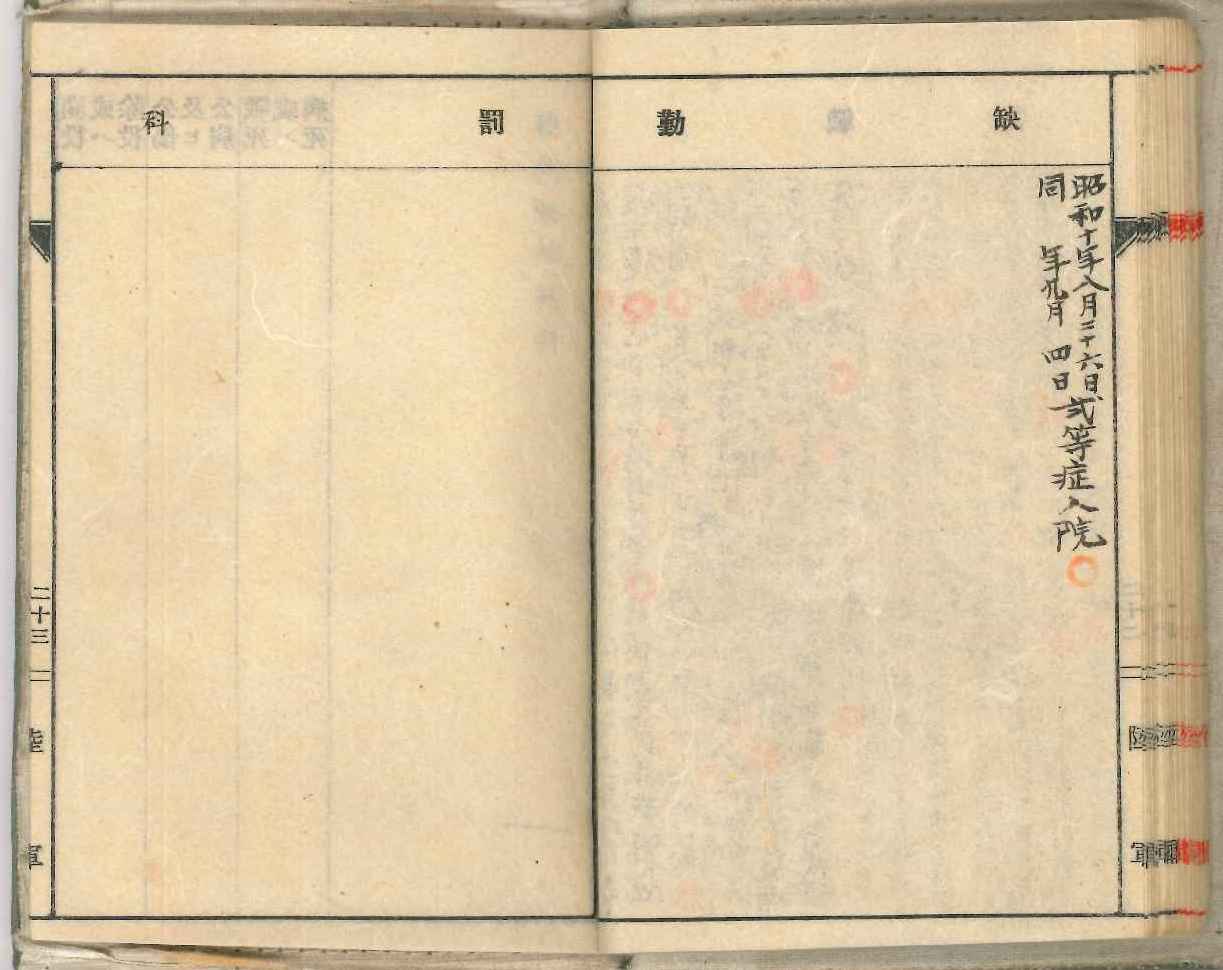 缺勤
昭和十年八月二十六日
同 年九月 四日
弐等症入院
罰科
二十三
陸軍
陸軍